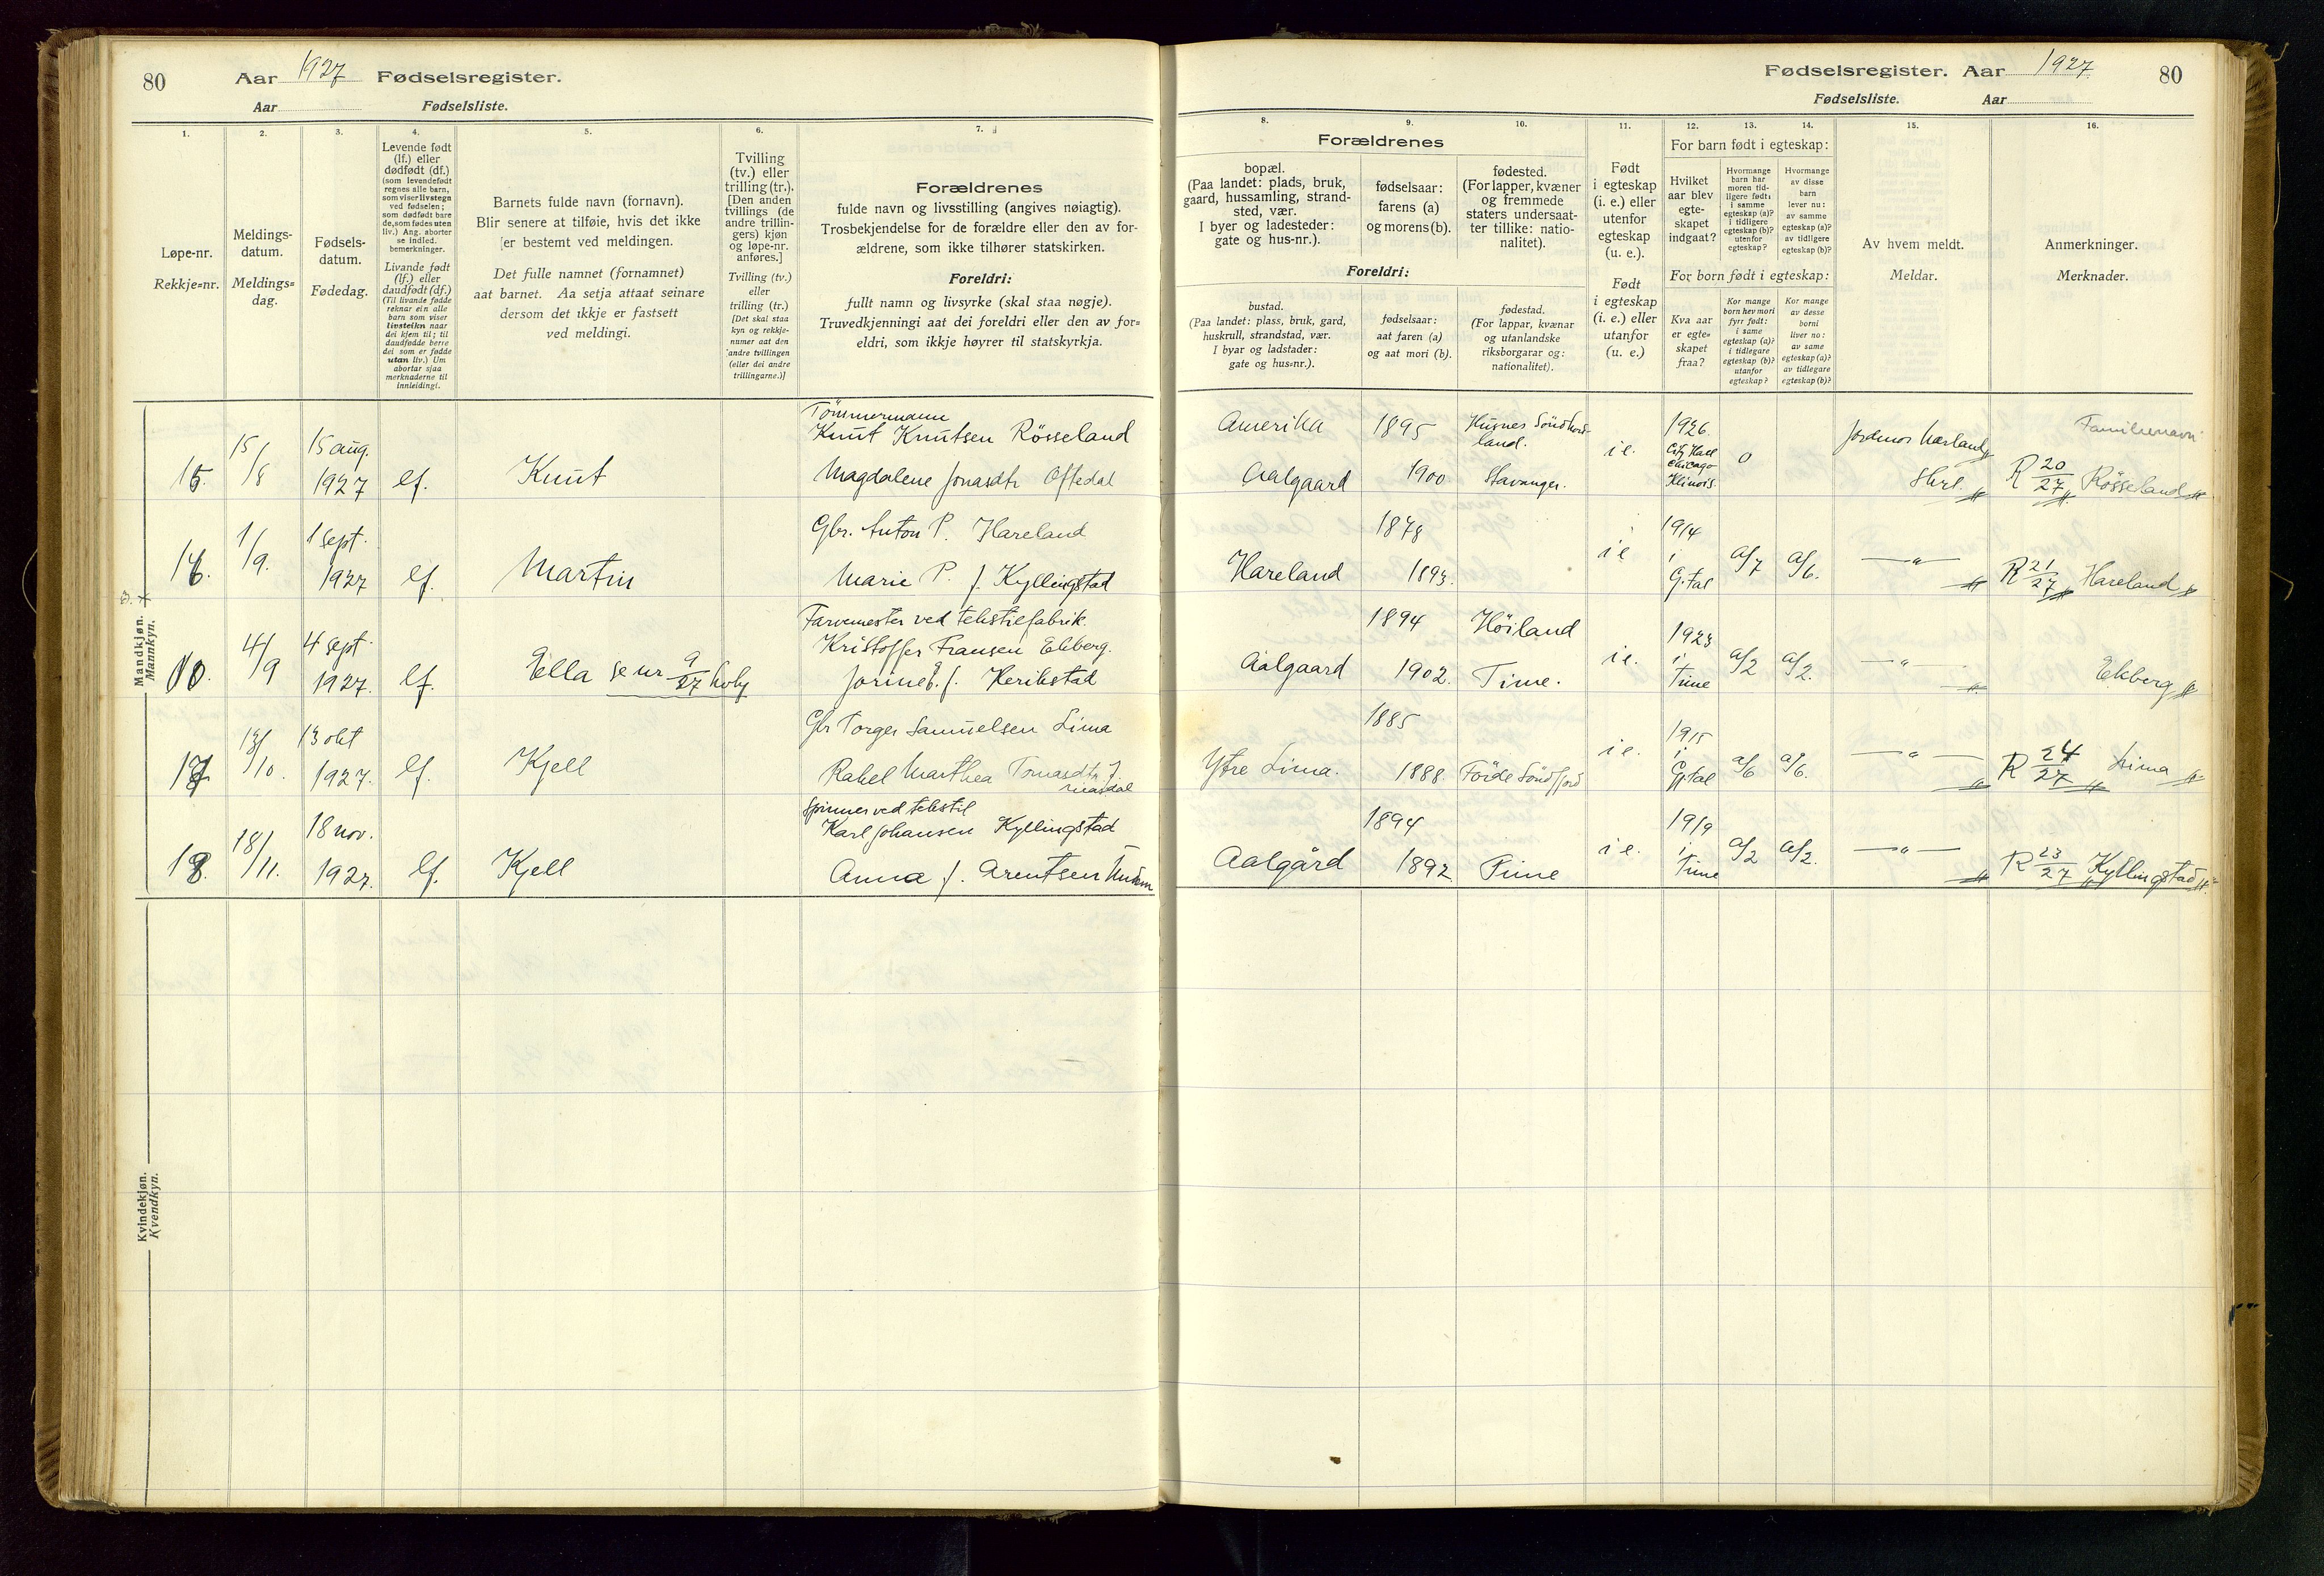 80
Aar 1927 Fødselsregister.
Aar Fødselsliste.
1.
2.
3.
4.
5.
6.
7.
Løpe-nr.
Rekkje=nr.
Meldings-
datum.
Meldings=
dag.
Fødsels-
datum.
Fødedag.
Levende født
(lf.) eller
dødfødt (df.)
(som levendefødt
regnes alle barn,
som viser livstegn
ved fødselen;
som dødfødt bare
de, som fødes uten
liv.) Ang. aborter
se indled.
bemerkninger.
Livande født
(lf.) eller
daudfødt (df.)
(Til livande fødde
reknar ein alle
barn som viser
livsteikn naar
dei kjem til; til
daudfødde berre
dei som er fødde
utan liv.) Um
abortar sjaa
merknaderne til
innleidingi.
Barnets fulde navn (fornavn).
Blir senere at tilføie, hvis det ikke
er bestemt ved meldingen.
Det fulle namnet (fornamnet)
aat barnet. Aa setja attaat seinare
dersom det ikkje er fastsett
ved meldingi.
Tvilling
(tv.) eller
trilling (tr.).
[Den anden
tvillings (de
andre trillin-
gers) kjøn
og løpe-nr.
anføres.]
Tvilling (tv.)
eller
trilling (tr.)
[Det skal staa
kyn og rekkje-
numer aat den
andre tvillingen
(eller dei andre
trillingarne.)]
Forældrenes
fulde navn og livsstilling (angives nøiagtig).
Trosbekjendelse for de forældre eller den av for-
ældrene, som ikke tilhører statskirken.
Foreldri:
fullt namn og livsyrke (skal staa nøgje).
Truvedkjenningi aat dei foreldri eller den av for=
eldri, som ikkje høyrer til statskyrkja.
Mandkjøn.
Mannkyn.
15.
15/8
15 aug.
1927
lf.
Knut
Tömmermann
Knut Knutsen Rösseland
Magdalene Jonasdtr Oftedal
16.
1/9.
1 sept.
1927
lf.
Martin
Gbr. Anton P. Hareland
Marie P. f. Kyllingstad
10.
4/9
4 sept.
1927.
lf.
Ella se nr 9/27 kvky
Farvemester ved tekstilfabrik.
Kristoffer Fransen Ekberg.
Jorine f. Kerikstad
17
13/10.
13 okt
1927.
lf.
Kjell
Gbr Torger Samuelsen Lima
Rakel Marthea Tomasdtr f.
18.
18/11.
18 nov.
1927.
lf.
Kjell
Spinner ved tekstil
Karl Johansen Kyllingstad
Anna f. Arentsen
Kvindekjøn.
Kvendkyn.
Fødselsregister. Aar 1927.
80
Fødselsliste. Aar
8.
9.
10.
11.
12.
13.
14.
15.
16.
Forældrenes
bopæl.
(Paa landet: plads, bruk,
gaard, hussamling, strand-
sted, vær.
I byer og ladesteder:
gate og hus-nr.).
fødselsaar:
farens (a)
og morens (b).
fødested.
(For lapper, kvæner
og fremmede
staters undersaat-
ter tillike: natio-
nalitet).
Foreldri:
bustad.
(Paa landet: plass, bruk, gard,
huskrull, strandstad, vær.
I byar og ladstader:
gate og hus=nr.).
fødselsaar:
aat faren (a)
og aat mori (b).
fødestad.
(For lappar, kvænar
og utanlandske
riksborgarar og:
nationalitet).
Født
i egteskap
(i. e.) eller
utenfor
egteskap
(u. e.).
Født
i egteskap
(i. e.) eller
utanfor
(u. e.)
For barn født i egteskap:
Hvilket
aar blev
egte-
skapet
indgaat?
Hvormange
barn har
moren tid-
ligere født:
i samme
egteskap (a)?
i tidligere
egteskap (b)?
utenfor
egteskap?
Hvormange
av disse
barn
lever nu:
av samme
egteskap (a)?
av tidligere
egteskap (b)?
For born født i egteskap:
Kva aar
er egte=
skapet
fraa?
Kor mange
born hev mori
fyrr født:
i same
egteskap (a)?
i tidlegare
egteskap (b)?
utanfor
egteskap?
Kor mange
av desse
borni
liver no:
av same
egteskap (a)?
av tidlegare
egteskap (b)?
Av hvem meldt.
Meldar.
Anmerkninger.
Merknader.
Amerika
1895
Husnes Söndhord-
land.
Aalgaard
1900
Stavanger.
i e.
1926.
City Hall
Chicago
Illinois
0
Jordmor Harland
Skrl.
Familienavn:
R 20/27 Rösseland
Hareland
1878
1893.
i e
1914
i
Gjtal
a/7
a/6.
— " —
R 21/27 Hareland
Aalgaard
1894
1902.
Höiland
Time.
i e.
1923
i
Time
a/2
a/2.
— " —
Ekberg
Ytre Lima.
1885
1888.
Förde Söndfjord
i e.
1915
i
Gjtal
a/6
a/6.
— " —
R 24/27 Lima
Aalgård
1894
1892.
Time
i e.
1919
i
Time
a/2
a/2.
— " —
R 23/27 Kyllingstad